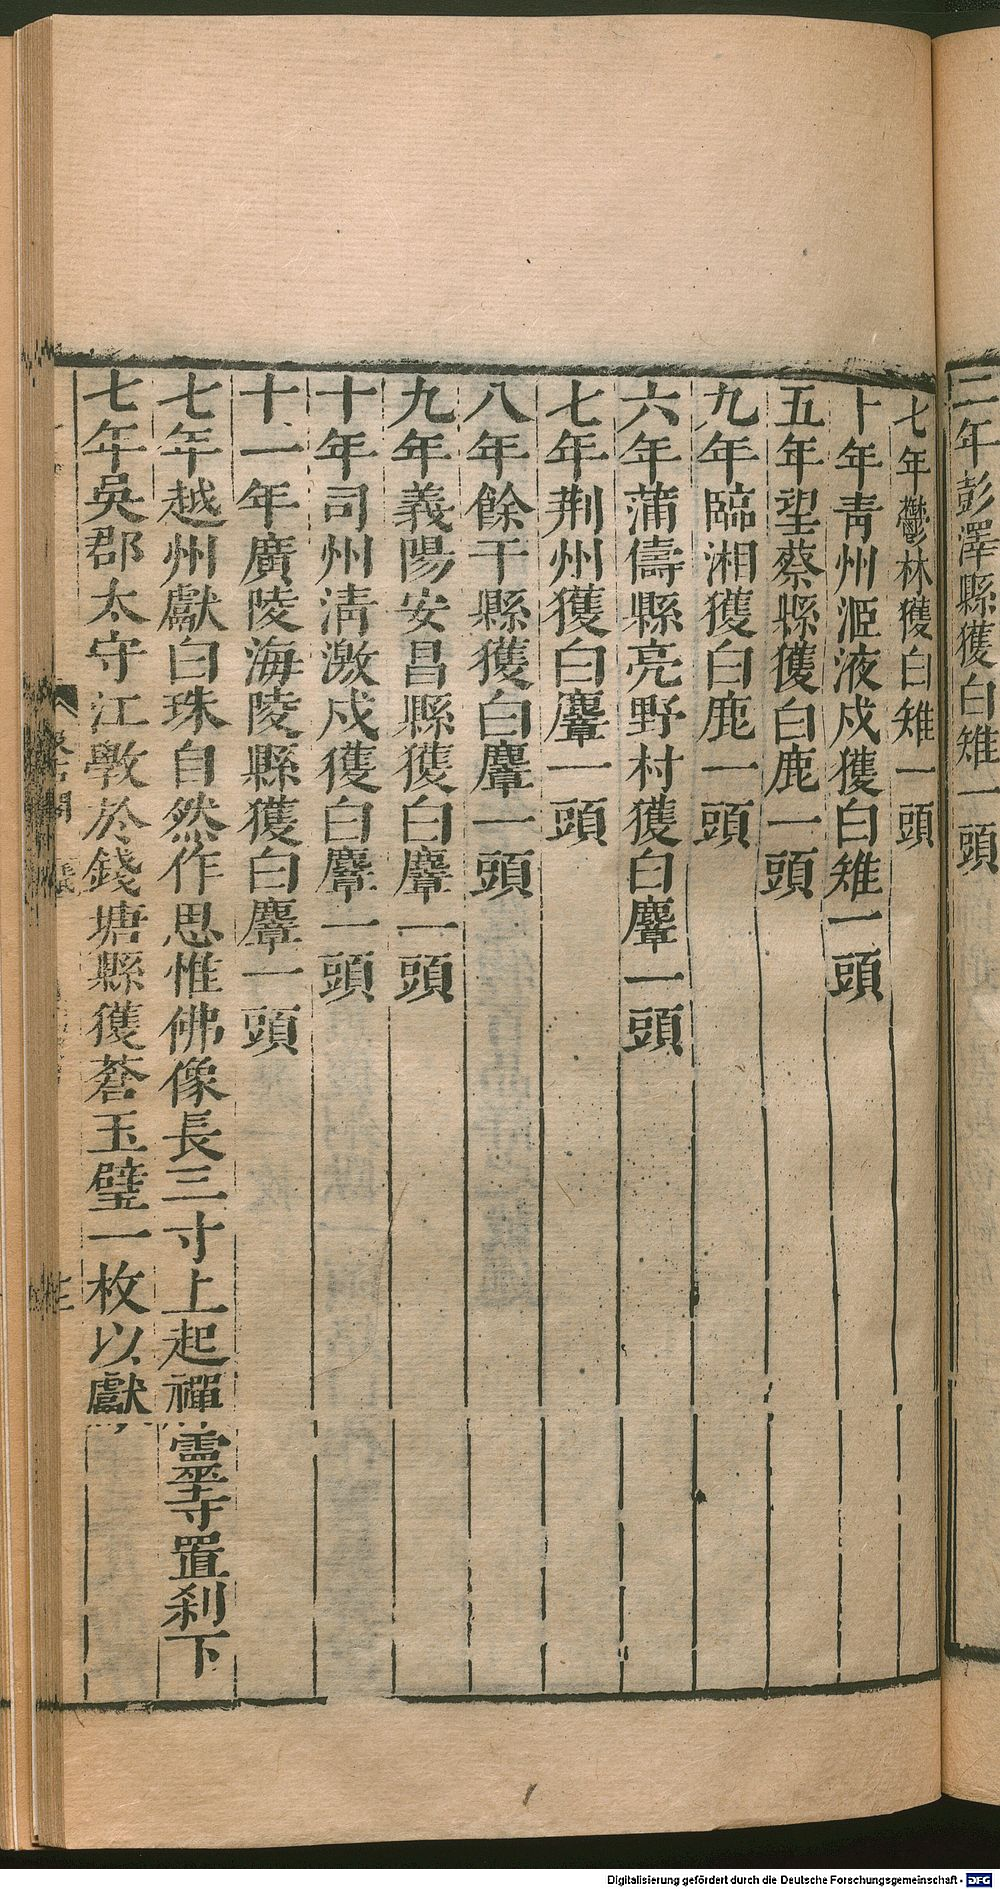 二年彭澤縣獲白雉一頭
七年鬱林獲白雉一頭
十年靑州㴒液戍獲白雉一頭
五年望蔡縣獲白鹿一頭
九年臨湘獲白鹿一頭
六年蒲濤縣亮野村獲白麞一頭
七年荆州獲白麞一頭
八年餘干縣獲白麞一頭
九年義陽安昌縣獲白麞一頭
十年司州淸激戍獲白麞一頭
十一年廣陵海陵縣獲白麞一頭
七年越州獻白珠自然作思惟佛像長三寸上起禪靈寺置刹下
七年吳郡太守江斆於錢塘縣獲蒼玉璧一枚以獻
Digitalisierung gefördert durch die Deutsche Forschungsgemeinschaft - DFG